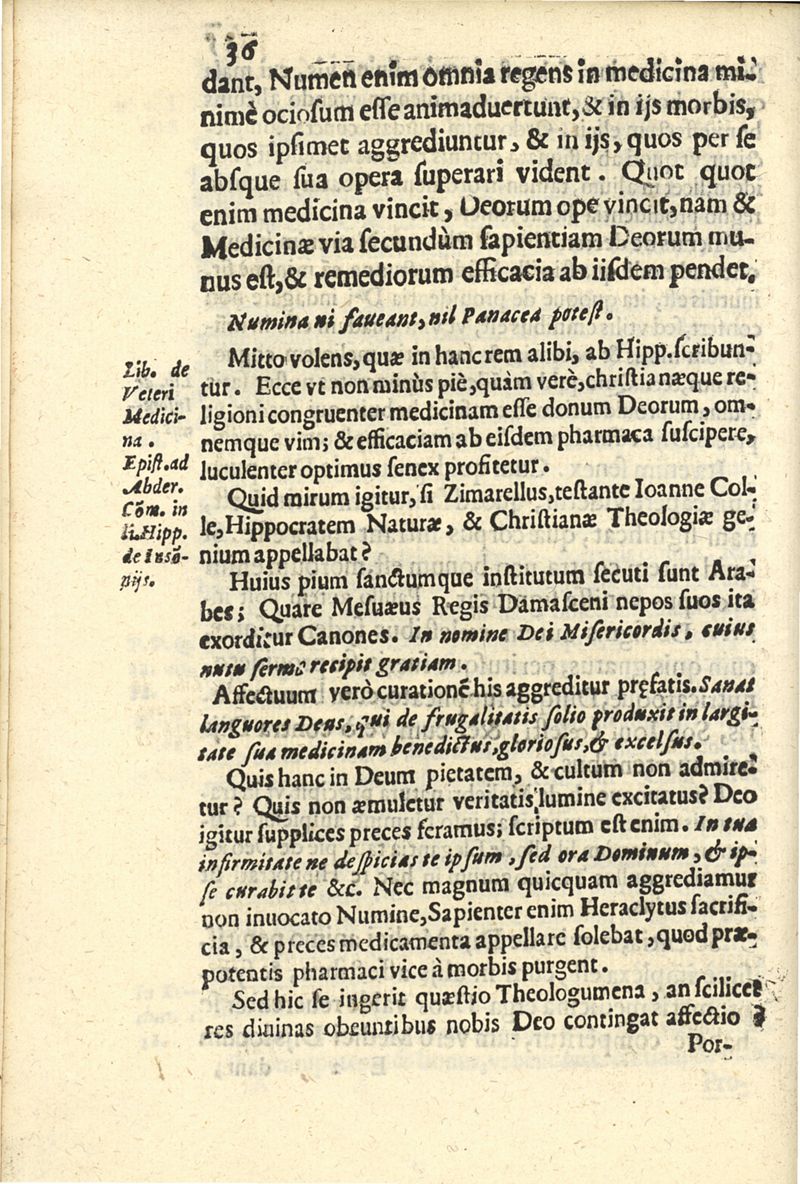 36
dant, Numen enim omnia regens in medicina mi-
nimè ociosum esse animaduertunt, & in ijs morbis,
quos ipsimet aggrediuntur, & in ijs, quos per se
absque sua opera superari vident. Quot quot
enim medicina vincit, Deorum ope vincit, nam &
Medicinæ via secundùm sapientiam Deorum mu-
nus est, & remediorum efficacia ab iisdem pendet.
Numina ni faueant, nil Panacea potest.
Mitto volens, quæ in hanc rem alibi, ab Hipp. scribun-
tur. Ecce vt non minùs piè, quàm verè, christianæque re-
ligioni congruenter medicinam esse donum Deorum, om-
nemque vim; & efficaciam ab eisdem pharmaca suscipere,
luculenter optimus senex profitetur.
Lib. de
Veteri
Medici-
na.
Epist. ad
Abder.
Cõm. in
li. Hipp.
de Insõ-
nijs.
Quid mirum igitur, si Zimarellus, testante Ioanne Col-
le, Hippocratem Naturæ, & Christianæ Theologiæ ge-
nium appellabat?
Huius pium sanctumque institutum secuti sunt Ara-
bes; Quare Mesuæus Regis Damasceni nepos suos ita
exorditur Canones. In nomine Dei Misericordis, cuius
nutu sermo recipit gratiam.
Affectuum verò curationẽ his aggreditur pręfatis. Sanat
languores Deus, qui de frugalitatis solio produxit in largi-
tate sua medicinam benedictus, gloriosus, & excelsus.
Quis hanc in Deum pietatem, & cultum non admire-
tur? Quis non æmuletur veritatis lumine excitatus? Deo
igitur supplices preces feramus; scriptum est enim. In tua
infirmitate ne despicias te ipsum, sed ora Dominum, & ip-
se curabit te &c. Nec magnum quicquam aggrediamur
non inuocato Numine, Sapienter enim Heraclytus sacrifi-
cia, & preces medicamenta appellare solebat, quod præ-
potentis pharmaci vice à morbis purgent.
Sed hic se ingerit quæstio Theologumena, an scilicet
res diuinas obeuntibus nobis Deo contingat affectio?
Por-